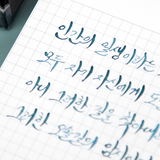 인간의 일생이라는
모두 자기 자신에게 도
아니 그러한 길을 찾아내
그러한 오솔길의 암시